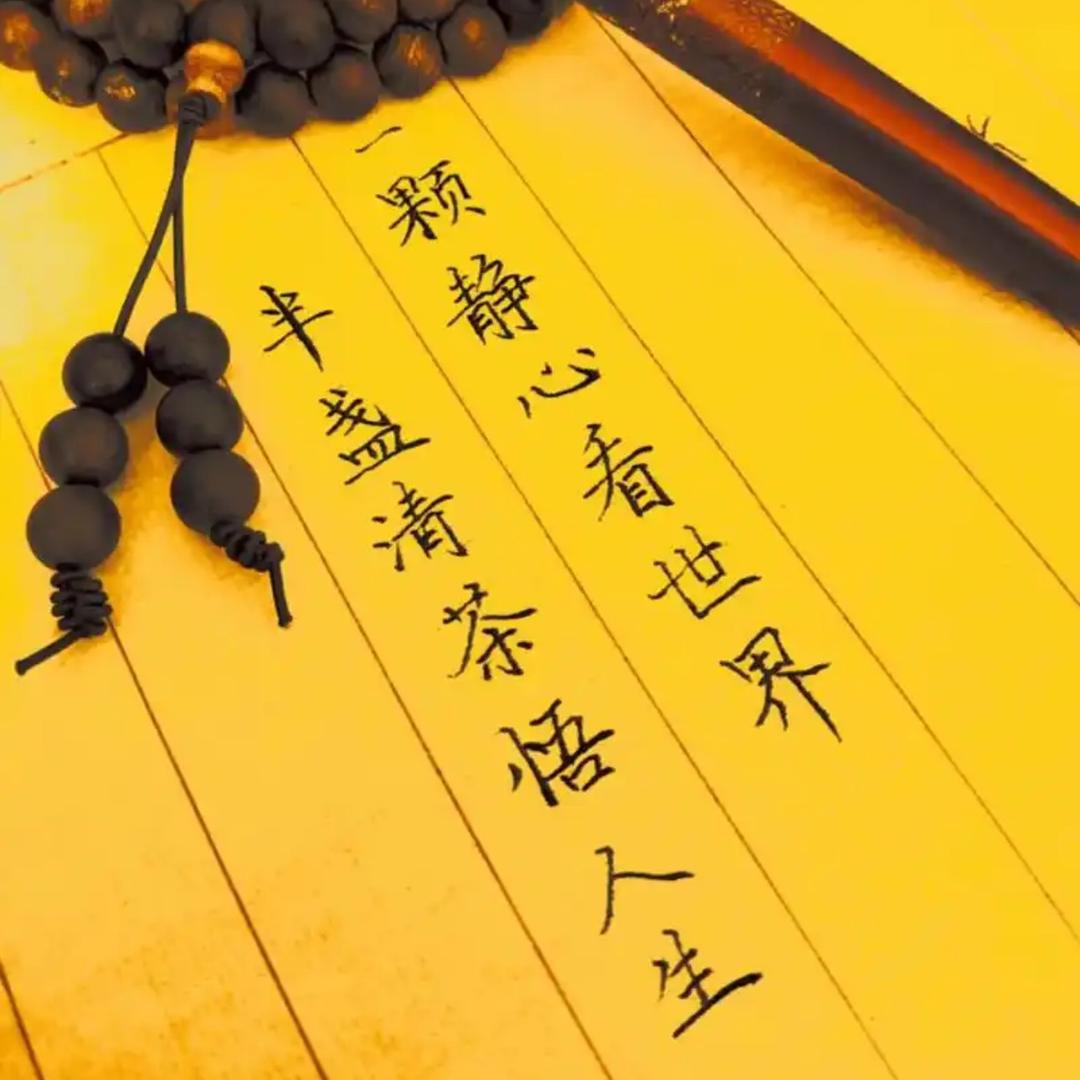 一颗静心看世界
半盏清茶悟人生